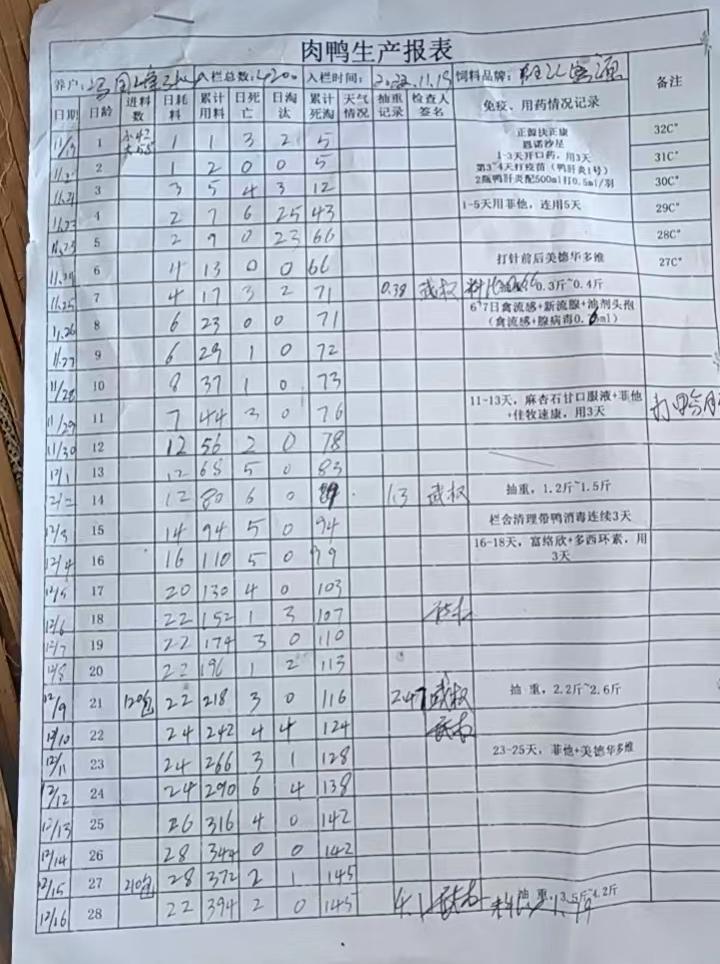 肉鸭生产报表
养户: 入栏总数: 4200 入栏时间: 2022.11.19 饲料品牌: 备注
日期 日龄 进料数 日耗料 累计用料 日死亡 日淘汰 累计死淘 天气情况 抽重记录 检查人签名 免疫、用药情况记录
11/19 1 小42 大55 1 1 3 2 5 正源扶正康 恩诺沙星 32C°
1-3天开口药，用3天
2 1 2 0 0 5 第3~4天打疫苗（鸭肝炎1号） 31C°
11.21 3 3 5 4 3 12 2瓶鸭肝炎配500ml打0.5ml/羽 30C°
11.22 4 2 7 6 25 43 1-5天用菲他，连用5天 29C°
11.23 5 2 9 0 23 66 28C°
11.24 6 4 13 0 0 66 打针前后美德华多维 27C°
11.25 7 4 17 3 2 71 0.38 武权 0.3斤~0.4斤
11.26 8 6 23 0 0 71 6~7日禽流感+新流腺+油剂头孢（禽流感+腺病毒0.6ml）
11.27 9 6 29 1 0 72
11/28 10 8 37 1 0 73
11/29 11 7 44 3 0 76 11-13天，麻杏石甘口服液+菲他+佳牧速康，用3天
11/30 12 12 56 2 0 78
12/1 13 12 68 5 0 83
12/2 14 12 80 6 0 89 1.3 武权 抽重，1.2斤~1.5斤
12/3 15 14 94 5 0 94 栏舍清理带鸭消毒连续3天
12/4 16 16 110 5 0 99 16-18天，富络欣+多西环素，用3天
12/5 17 20 130 4 0 103
12/6 18 22 152 1 3 107 武权
12/7 19 22 174 3 0 110
12/8 20 22 196 1 2 113
12/9 21 120包 22 218 3 0 116 2.47 武权 抽 重，2.2斤~2.6斤
12/10 22 24 242 4 4 124 武权
12/11 23 24 266 3 1 128 23-25天，菲他+美德华多维
12/12 24 24 290 6 4 138
12/13 25 26 316 4 0 142
12/14 26 28 344 0 0 142
12/15 27 210包 28 372 2 1 145
12/16 28 22 394 2 0 145 4.1 武权 抽 重，3.5斤~4.2斤